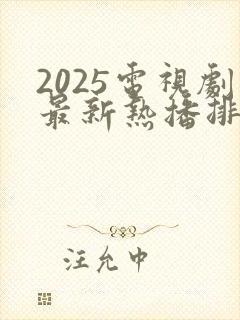 2025電視劇
最新熱播排
汪允中